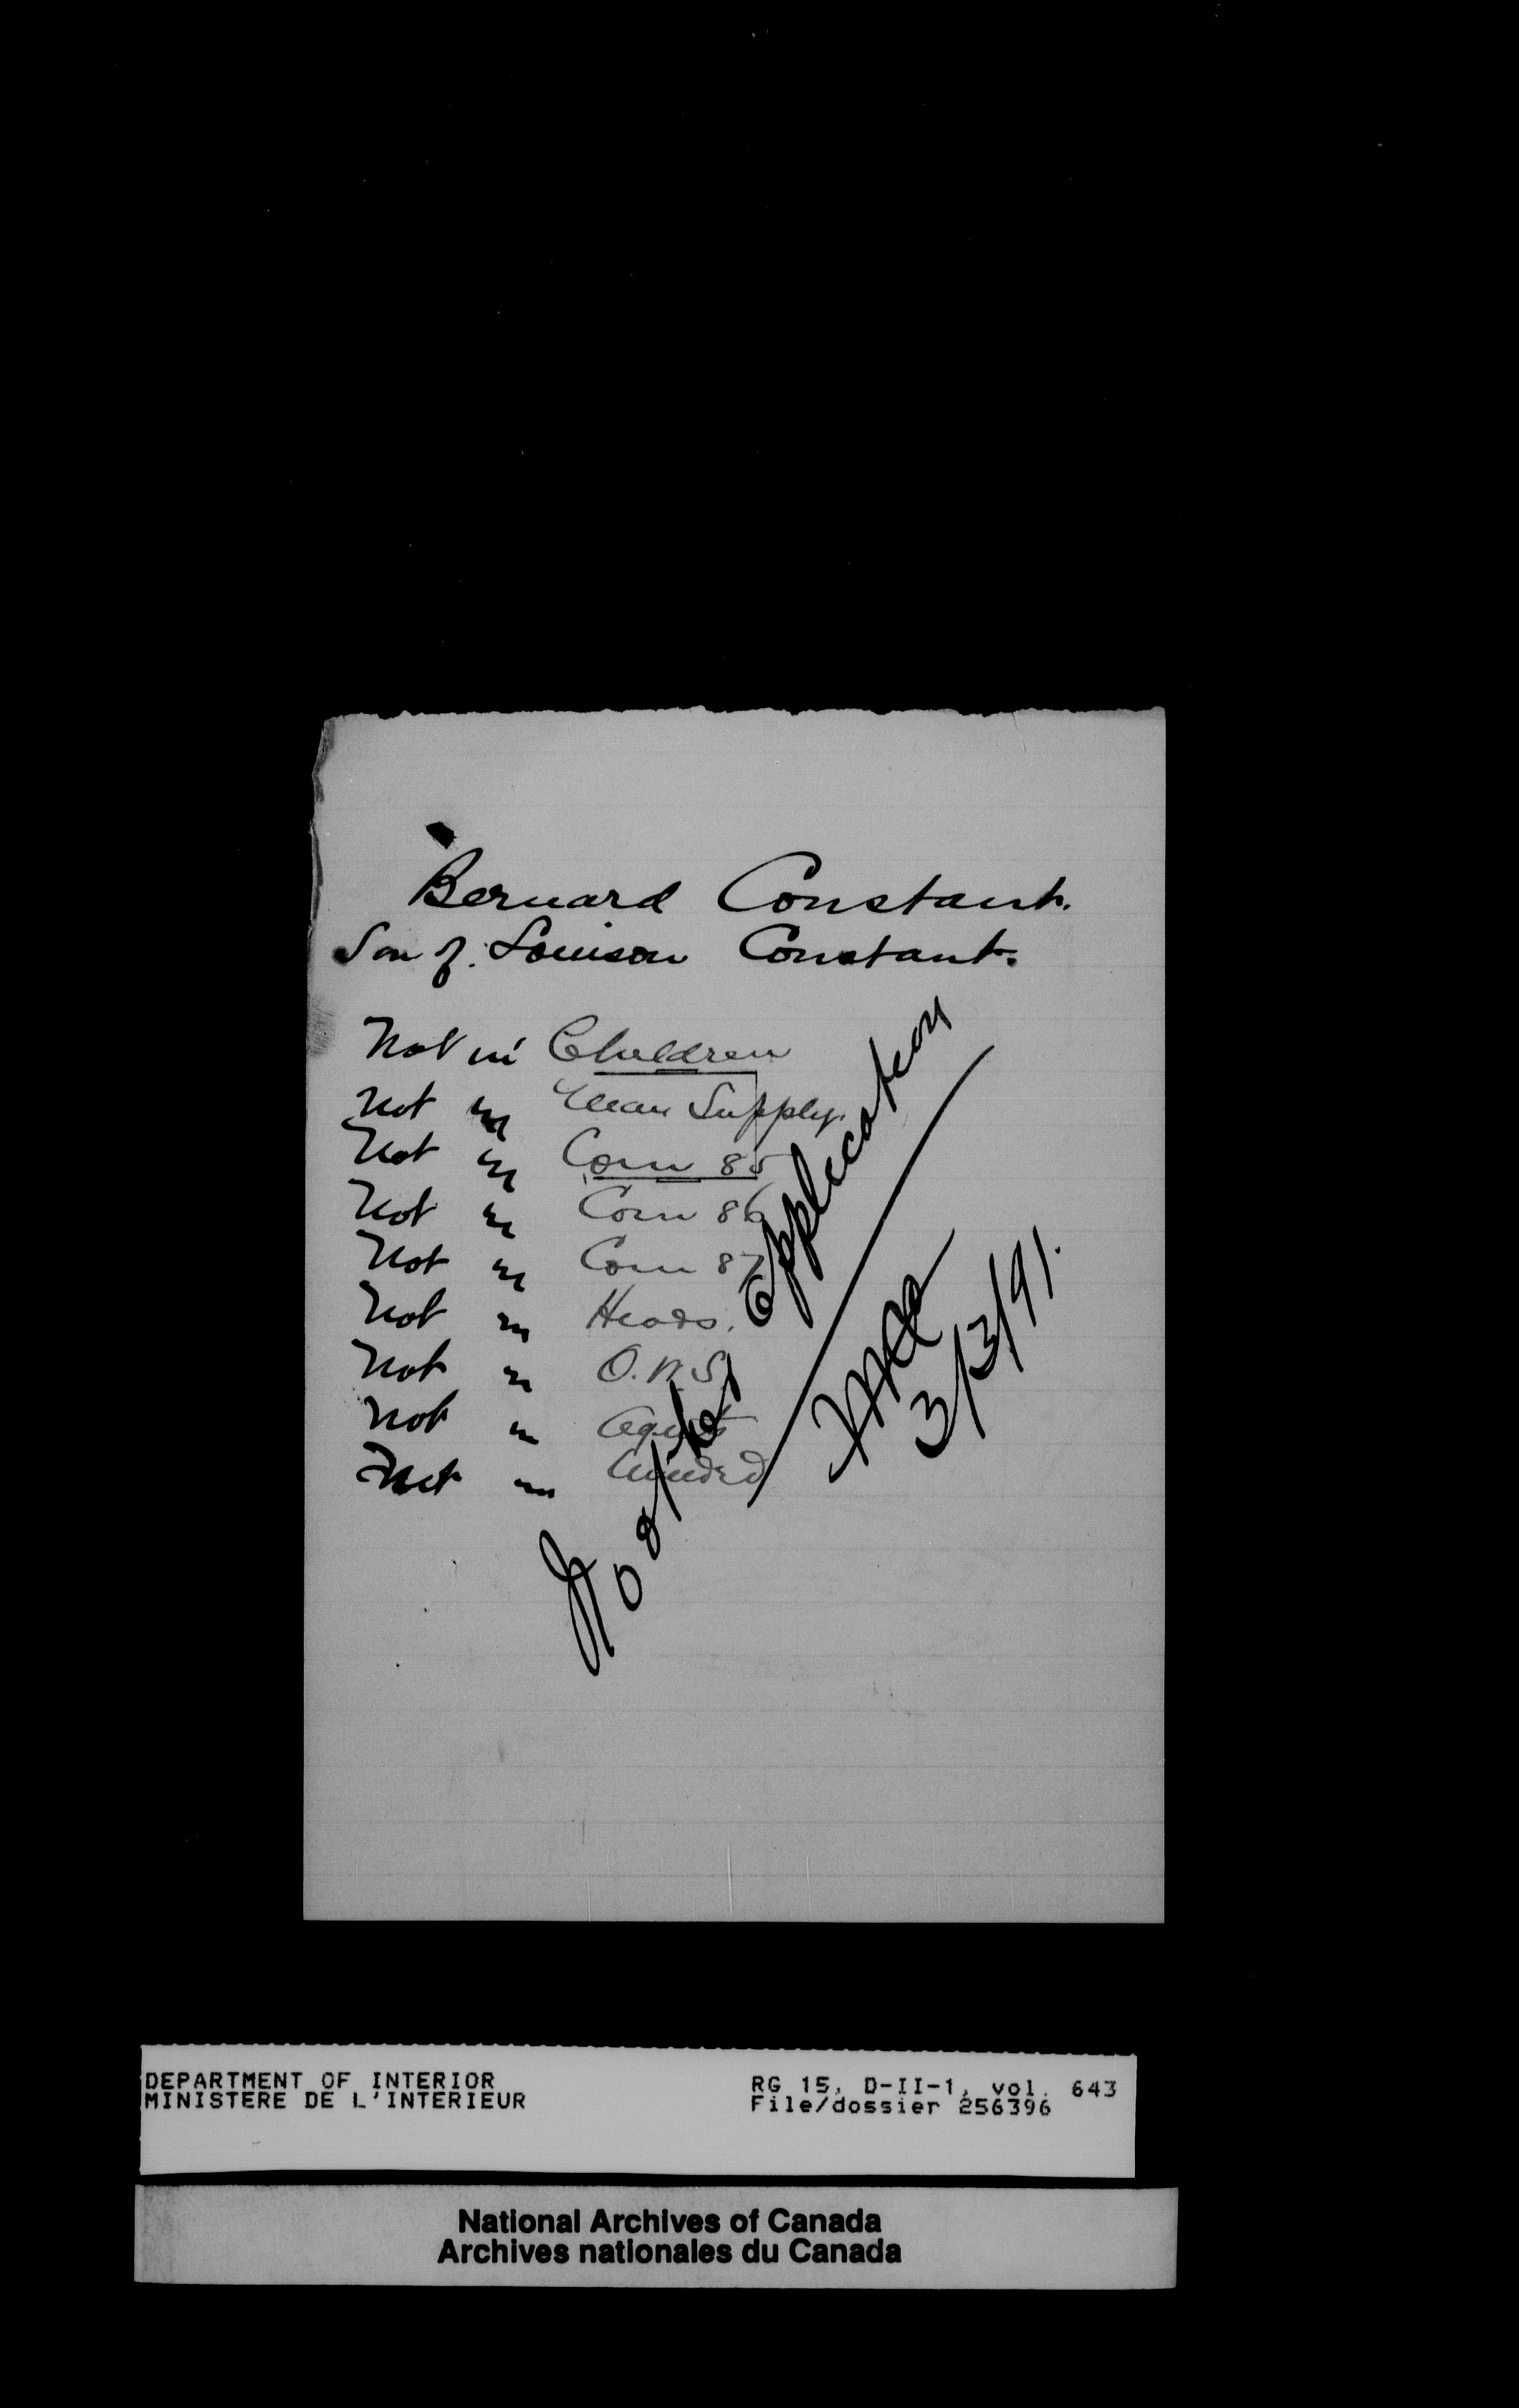 Bernard Constant.
Son of Louison Constant.
Not in Children
Not in Supply.
Not in Com 85
Not in Com 86
Not in Com 87
Not in Heads.
Not in O.N.S
Not in
Not in
No other application
3/3/91.
DEPARTMENT OF INTERIOR
MINISTERE DE L'INTERIEUR
RG 15, D-II-1, vol. 643
File/dossier 256396
National Archives of Canada
Archives nationales du Canada